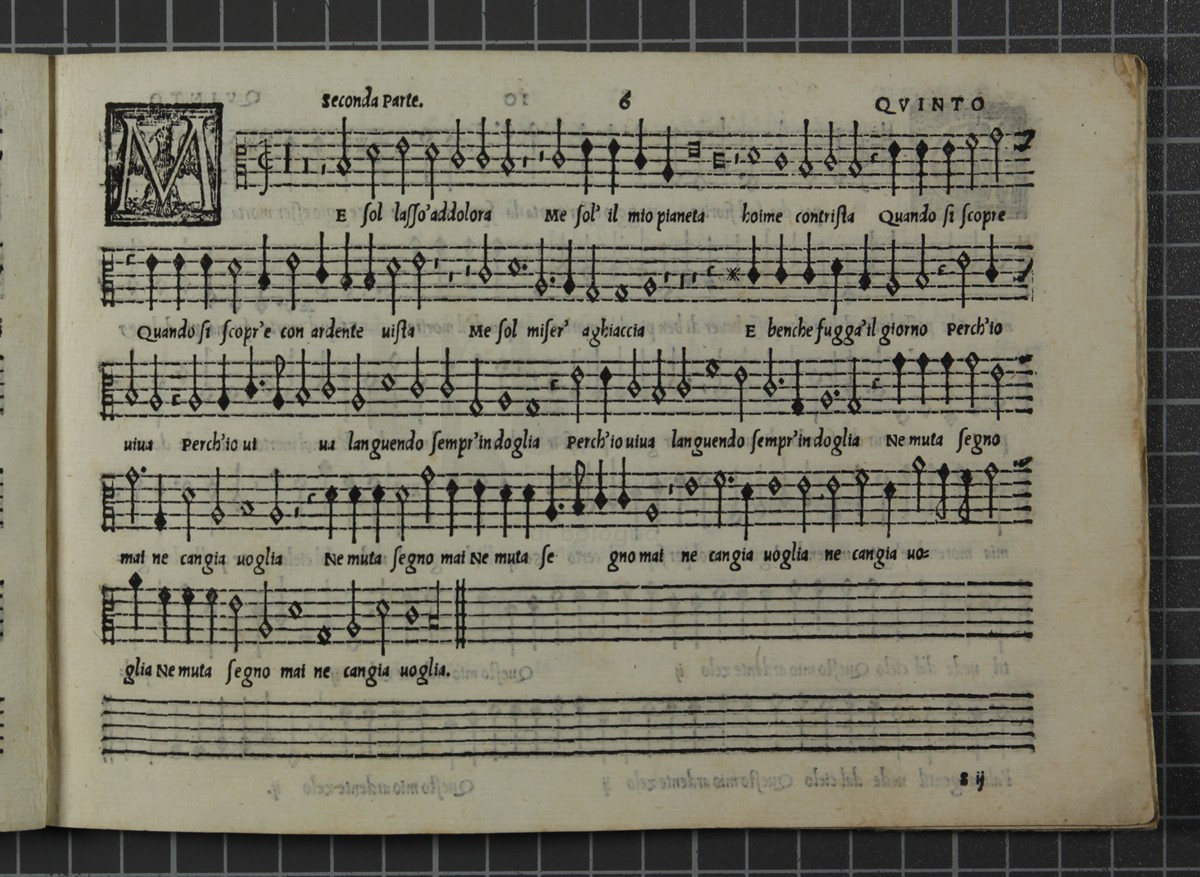 Seconda Parte. 6 QVINTO
M
E ſol laſſo'addolora Me ſol' il mio pianeta hoime contriſta Quando ſi ſcopre
Quando ſi ſcopr'e con ardente uiſta Me ſol miſer' aghiaccia E benche fugga'il giorno Perch'io
uiua Perch'io ui ua languendo ſempr'in doglia Perch'io uiua languendo ſempr'in doglia Ne muta ſegno
mai ne cangia uoglia Ne muta ſegno mai Ne muta ſe gno mai ne cangia uoglia ne cangia uo=
glia Ne muta ſegno mai ne cangia uoglia.
S ij